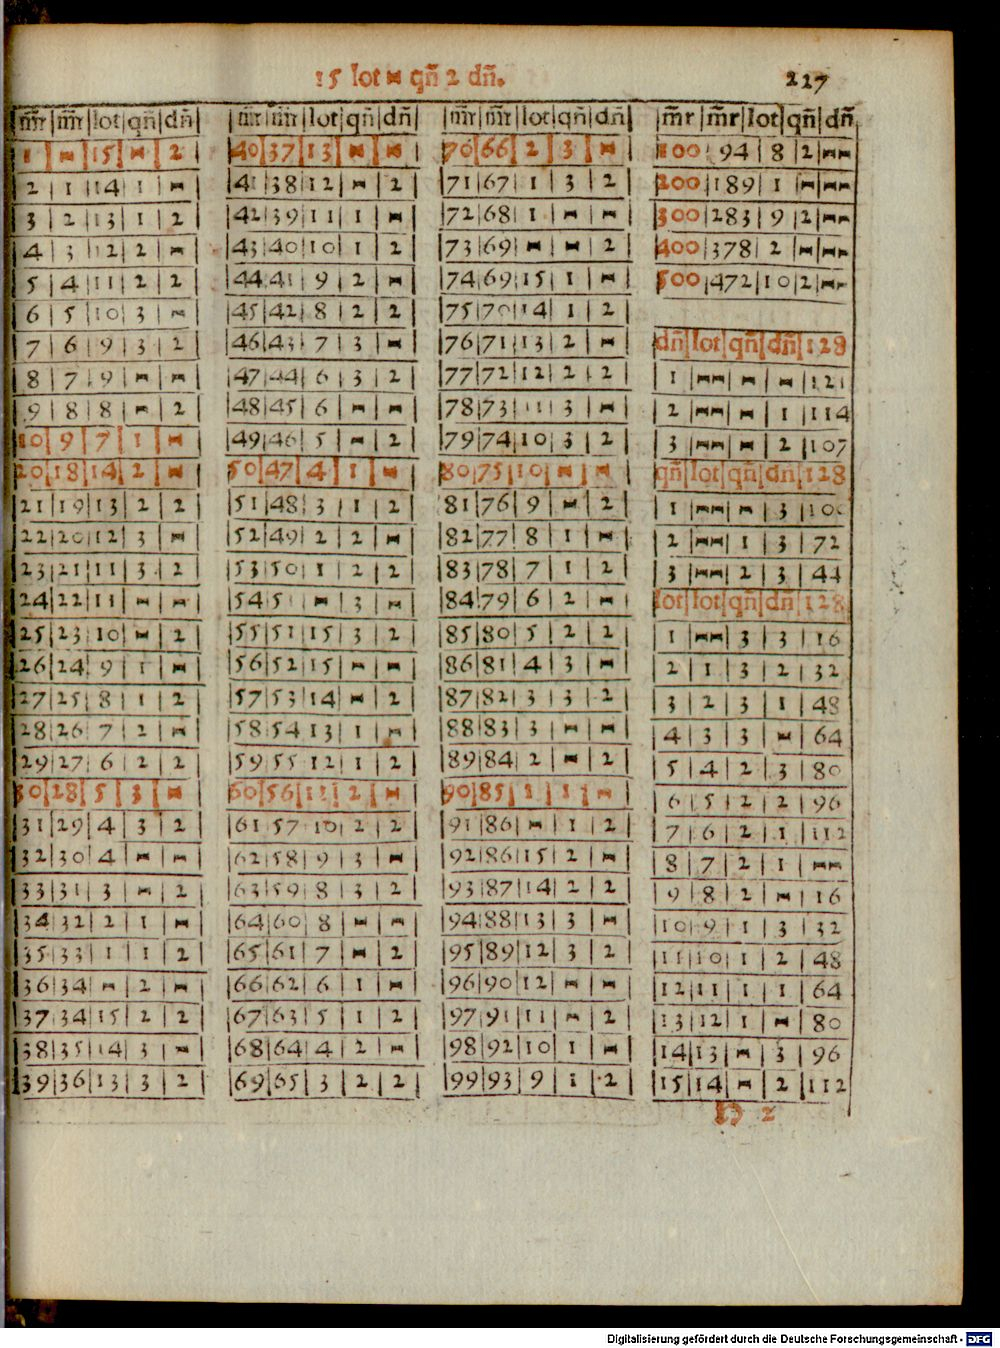 15 lot – qñ 2 dñ.
227
m̃r | m̃r | lot | qñ | dñ
1 | – | 15 | – | 2
2 | 1 | 14 | 1 | –
3 | 2 | 13 | 1 | 2
4 | 3 | 12 | 2 | –
5 | 4 | 11 | 2 | 2
6 | 5 | 10 | 3 | –
7 | 6 | 9 | 3 | 2
8 | 7 | 9 | – | –
9 | 8 | 8 | – | 2
10 | 9 | 7 | 1 | –
20 | 18 | 14 | 2 | –
21 | 19 | 13 | 2 | 2
22 | 20 | 12 | 3 | –
23 | 21 | 11 | 3 | 2
24 | 22 | 11 | – | –
25 | 23 | 10 | – | 2
26 | 24 | 9 | 1 | –
27 | 25 | 8 | 1 | 2
28 | 26 | 7 | 2 | –
29 | 27 | 6 | 2 | 2
30 | 28 | 5 | 3 | –
31 | 29 | 4 | 3 | 2
32 | 30 | 4 | – | –
33 | 31 | 3 | – | 2
34 | 32 | 2 | 1 | –
35 | 33 | 1 | 1 | 2
36 | 34 | – | 2 | –
37 | 34 | 15 | 2 | 2
38 | 35 | 14 | 3 | –
39 | 36 | 13 | 3 | 2
m̃r | m̃r | lot | qñ | dñ
40 | 37 | 13 | – | –
41 | 38 | 12 | – | 2
42 | 39 | 11 | 1 | –
43 | 40 | 10 | 1 | 2
44 | 41 | 9 | 2 | –
45 | 42 | 8 | 2 | 2
46 | 43 | 7 | 3 | –
47 | 44 | 6 | 3 | 2
48 | 45 | 6 | – | –
49 | 46 | 5 | – | 2
50 | 47 | 4 | 1 | –
51 | 48 | 3 | 1 | 2
52 | 49 | 2 | 2 | –
53 | 50 | 1 | 2 | 2
54 | 5 | – | 3 | –
55 | 51 | 15 | 3 | 2
56 | 52 | 15 | – | –
57 | 53 | 14 | – | 2
58 | 54 | 13 | 1 | –
59 | 55 | 12 | 1 | 2
60 | 56 | 11 | 2 | –
61 | 57 | 10 | 2 | 2
62 | 58 | 9 | 3 | –
63 | 59 | 8 | 3 | 2
64 | 60 | 8 | – | –
65 | 61 | 7 | – | 2
66 | 62 | 6 | 1 | –
67 | 63 | 5 | 1 | 2
68 | 64 | 4 | 2 | –
69 | 65 | 3 | 2 | 2
m̃r | m̃r | lot | qñ | dñ
70 | 66 | 2 | 3 | –
71 | 67 | 1 | 3 | 2
72 | 68 | 1 | – | –
73 | 69 | – | – | 2
74 | 69 | 15 | 1 | –
75 | 70 | 14 | 1 | 2
76 | 71 | 13 | 2 | –
77 | 72 | 12 | 2 | 2
78 | 73 | 11 | 3 | –
79 | 74 | 10 | 3 | 2
80 | 75 | 10 | – | –
81 | 76 | 9 | – | 2
82 | 77 | 8 | 1 | –
83 | 78 | 7 | 1 | 2
84 | 79 | 6 | 2 | –
85 | 80 | 5 | 2 | 2
86 | 81 | 4 | 3 | –
87 | 82 | 3 | 3 | 2
88 | 83 | 3 | – | –
89 | 84 | 2 | – | 2
90 | 85 | 1 | 1 | –
91 | 86 | – | 1 | 2
92 | 86 | 15 | 2 | –
93 | 87 | 14 | 2 | 2
94 | 88 | 13 | 3 | –
95 | 89 | 12 | 3 | 2
96 | 90 | 12 | – | –
97 | 91 | 11 | – | 2
98 | 92 | 10 | 1 | –
99 | 93 | 9 | 1 | 2
m̃r | m̃r | lot | qñ | dñ
100 | 94 | 8 | 2 | – –
200 | 189 | 1 | – | – –
300 | 283 | 9 | 2 | – –
400 | 378 | 2 | – | – –
500 | 472 | 10 | 2 | – –
dñ | lot | qñ | dñ | 128
1 | – – | – | – | 121
2 | – – | – | 1 | 114
3 | – – | – | 2 | 107
qñ | lot | qñ | dñ | 128
1 | – – | – | 3 | 100
2 | – – | 1 | 3 | 72
3 | – – | 2 | 3 | 44
lot | lot | qñ | dñ | 128
1 | – – | 3 | 3 | 16
2 | 1 | 3 | 2 | 32
3 | 2 | 3 | 1 | 48
4 | 3 | 3 | – | 64
5 | 4 | 2 | 3 | 80
6 | 5 | 2 | 2 | 96
7 | 6 | 2 | 1 | 112
8 | 7 | 2 | 1 | – –
9 | 8 | 2 | – | 16
10 | 9 | 1 | 3 | 32
11 | 10 | 1 | 2 | 48
12 | 11 | 1 | 1 | 64
13 | 12 | 1 | – | 80
14 | 13 | – | 3 | 96
15 | 14 | – | 2 | 112
2
Digitalisierung gefördert durch die Deutsche Forschungsgemeinschaft - DFG